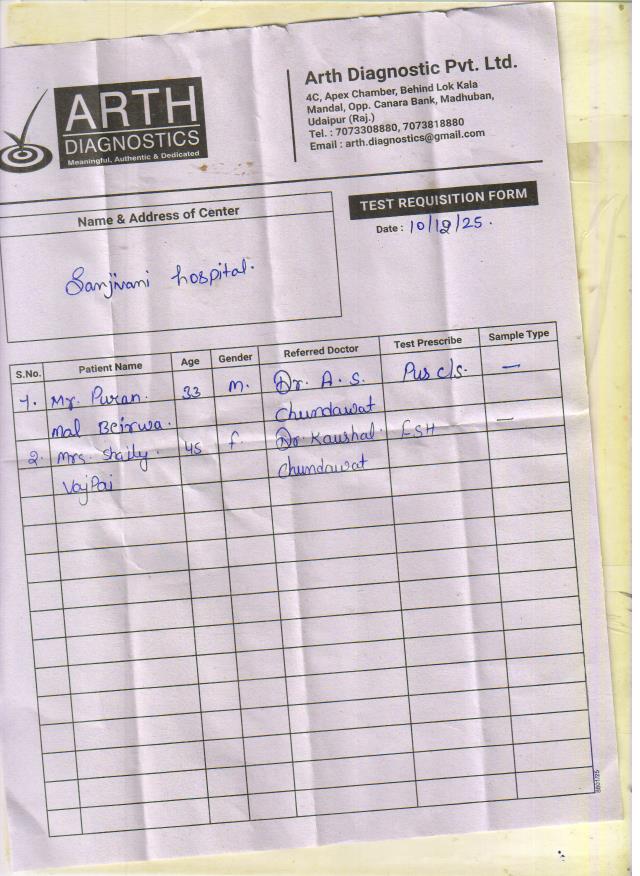 ARTH
DIAGNOSTICS
Meaningful, Authentic & Dedicated
Arth Diagnostic Pvt. Ltd.
4C, Apex Chamber, Behind Lok Kala
Mandal, Opp. Canara Bank, Madhuban,
Udaipur (Raj.)
Tel. : 7073308880, 7073818880
Email : arth.diagnostics@gmail.com
Name & Address of Center
TEST REQUISITION FORM
Date : 10/12/25.
Sanjivani hospital.
S.No. Patient Name Age Gender Referred Doctor Test Prescribe Sample Type
1. Mr. Puran. 33 M. Dr. A. S. Pus c/s. —
mal Beirwa. Chundawat
2. Mrs. Shaily. 45 f. Dr. Kaushal. FSH —
Vajpai Chundawat
8801/25